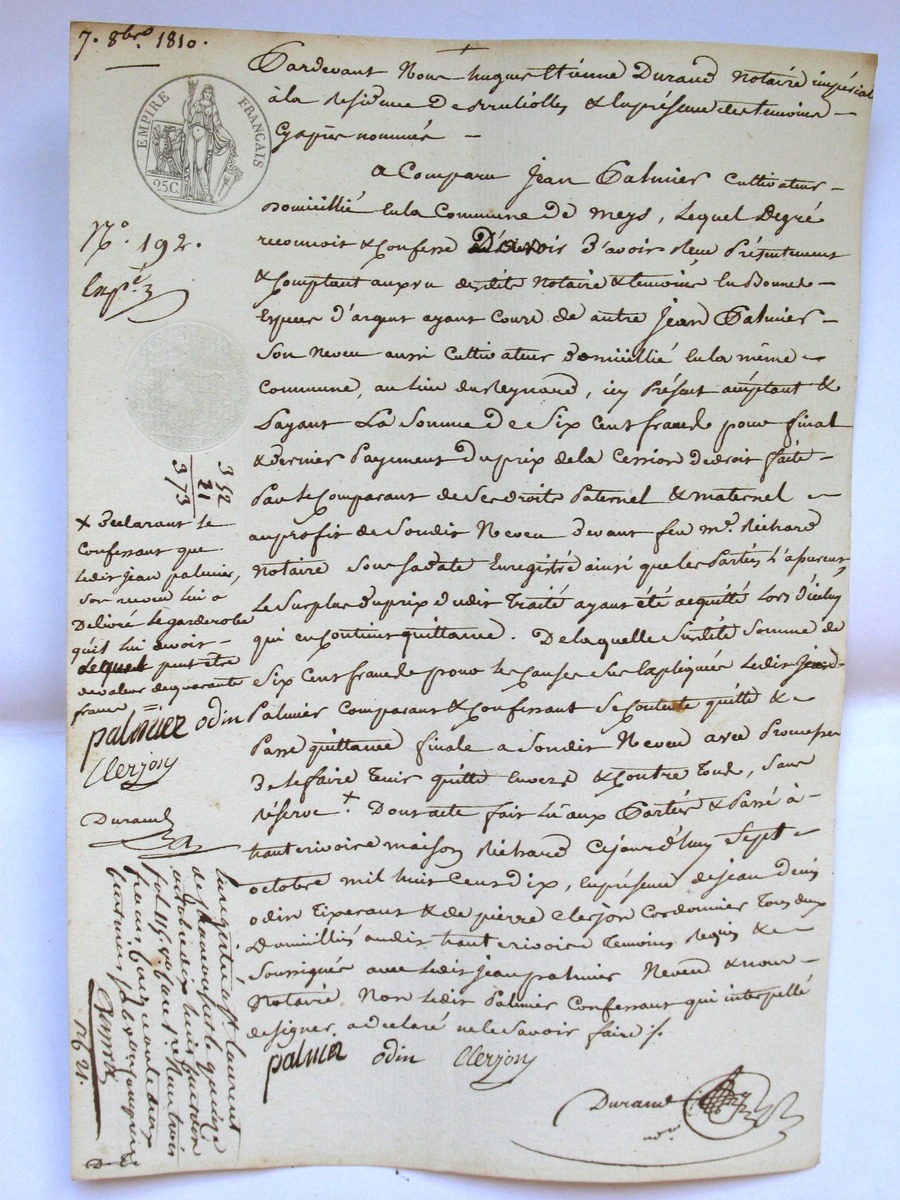 7. 8bre. 1810.
Pardevant Nous hugues Etienne Durand Notaire impérial
à la Residence de & en présence des temoins
Cy après nommés
EMPIRE FRANÇAIS
25 C.
N.o 192.
Exp.é
a Comparu Jean Palmier Cultivateur
Domicilié en la Commune de Meys, Lequel degré
reconnoit & Confesse D'avoir reçu Présentement
& Comptant au vu desdits Notaire & temoins En Bonnes
Espèces d'argent ayant Cours de autre Jean Palmier
Son Neveu aussi Cultivateur domicilié En la même
Commune, au lieu du Reynard, icy Présent acceptant &
Payant La Somme de Six Cent francs pour final
& dernier Payement du prix de la Cession de droit faite
Par le Comparant de Ses droits Paternel & maternel
au profit de Sondit Neveu devant feu me. Richard
Notaire Sous Sa date Enregistré ainsi que les Parties L'assurent,
Le Surplus du prix dudit Traité ayant été acquitté Lors d'iceluy
qui en Contient quittance. De laquelle Susdite Somme de
Six Cent francs pour les Causes Sus Expliquées Ledit Jean
Palmier Comparant & Confessant Se Contente quitte &
Passe quittance finale a Sondit Neveu avec Promesse
de le faire Tenir quitte Envers & Contre Tous, Sans
réserve + Dont acte fait Lu aux Parties & Passé à
hauterivoire maison Richard Cejourd'huy Sept
octobre mil huit Cent dix, En présence de Jean Denis
odin Tixerant & de pierre Clerjon Cordonnier Tous deux
Domiciliés audit hauterivoire Temoins Requis &
Soussignés avec Ledit Jean palmier Neveu & nous
Notaire Non Ledit Palmier Confessant qui interpellé
de Signer, a Déclaré ne le Savoir faire /.
palmier odin Clerjon
Durand
no.re
352
21
373
+ Declarant le
Confessant que
Ledit Jean palmier,
Son neveu lui a
Délivré Le garderobe
qu'il lui devoit
Lequel peut être
de valeur de quarante
francs =
palmier odin
Clerjon
Durand
Enregistré à St. Laurent
de Chamousset le quinze
octobre dix huit cent dix
fol. 115